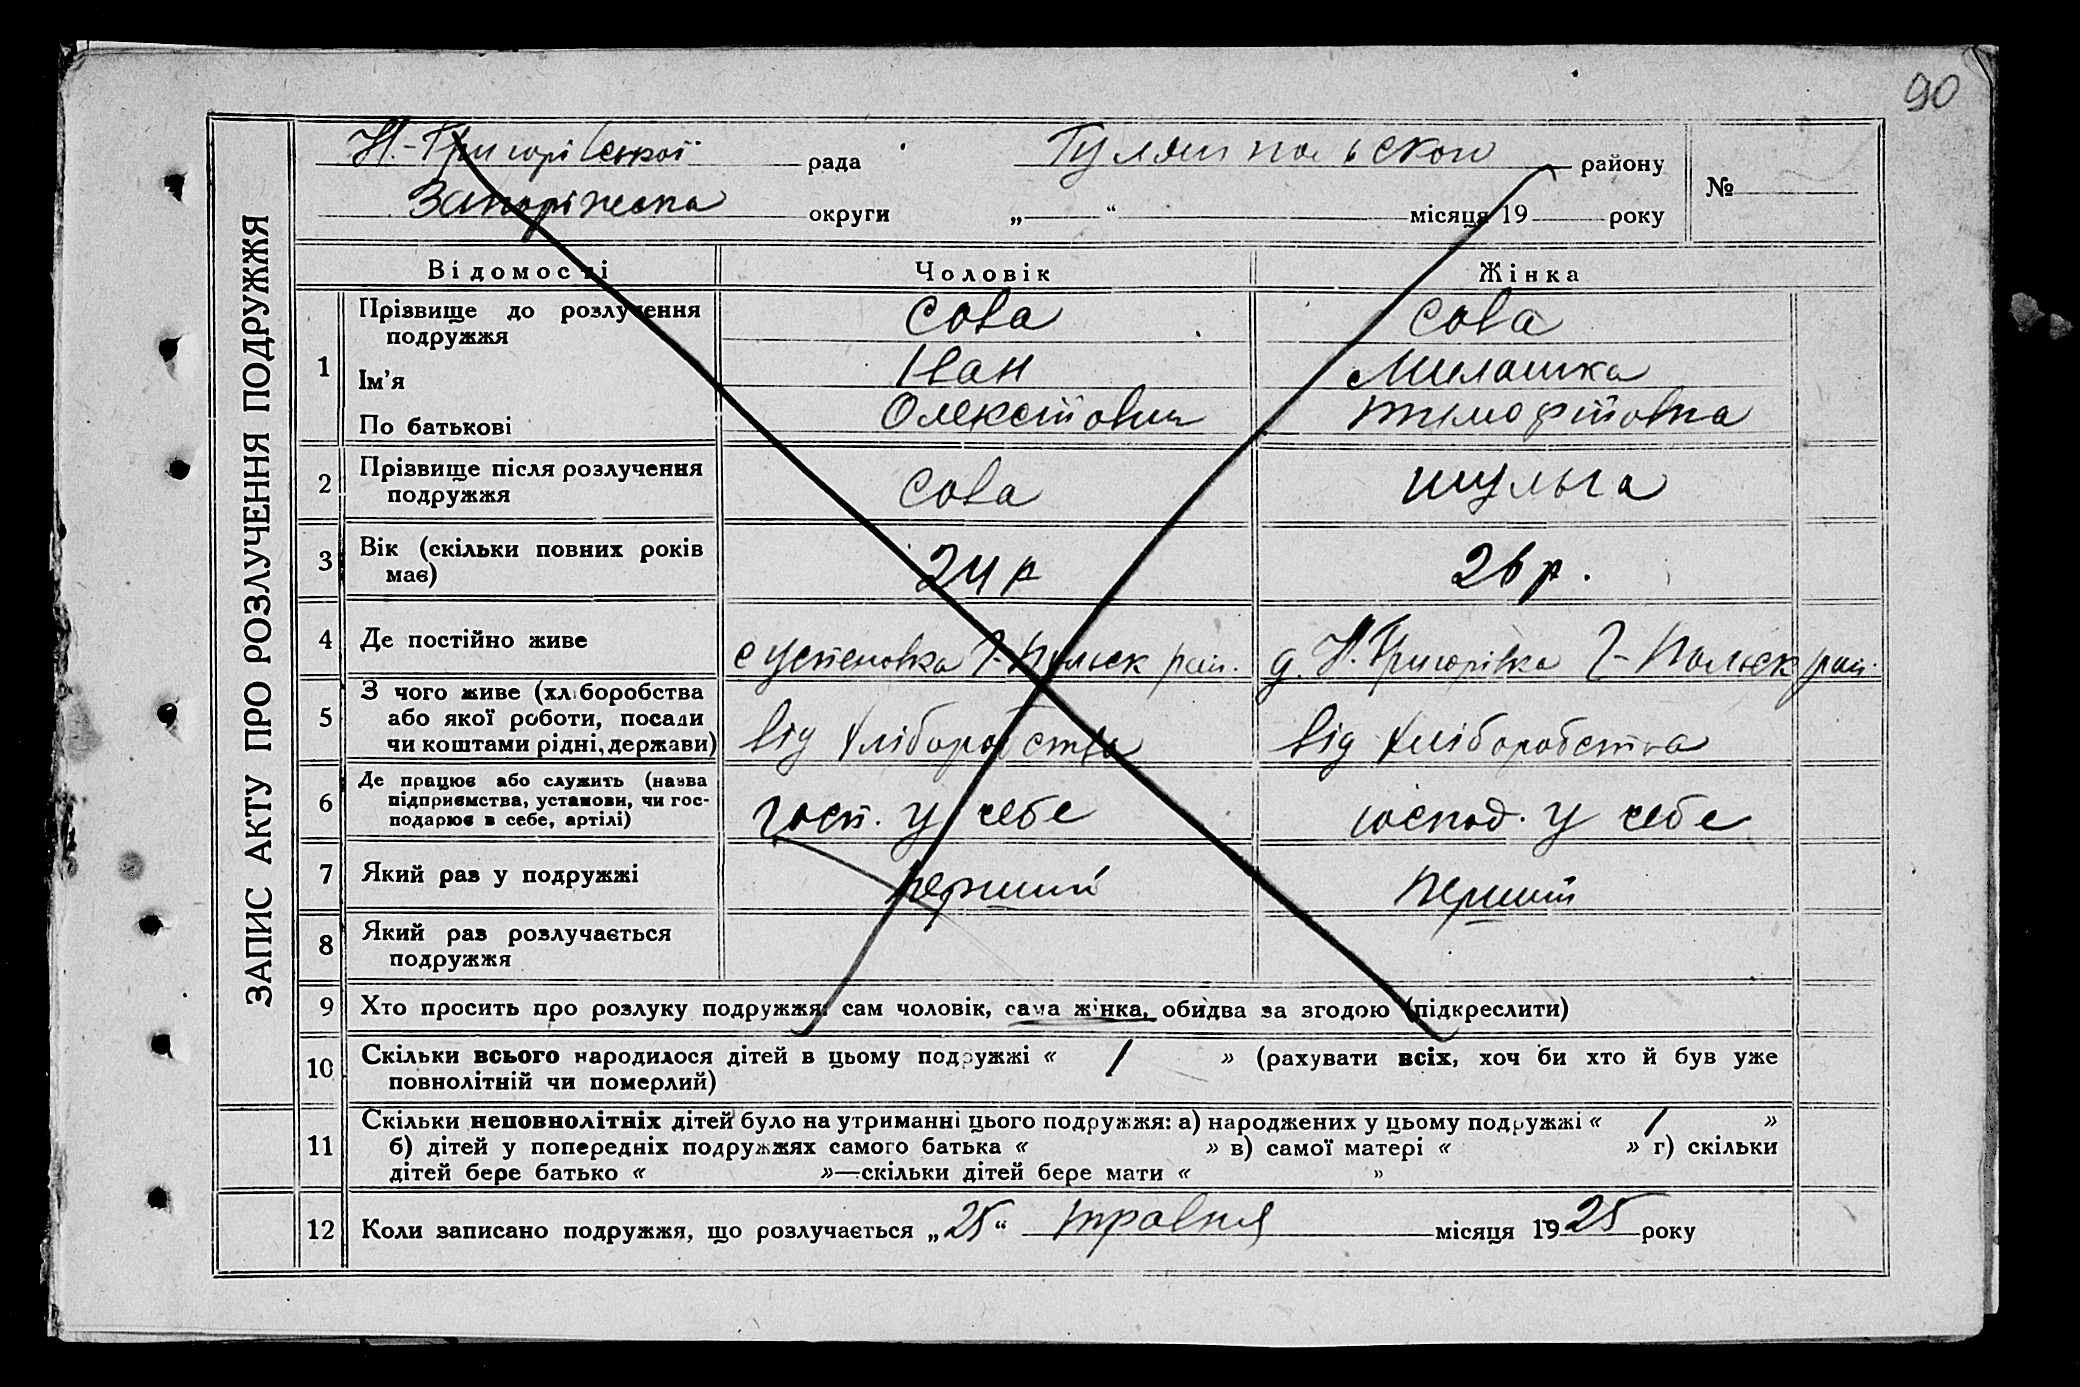 90
ЗАПИС АКТУ ПРО РОЗЛУЧЕННЯ ПОДРУЖЖЯ
Н.-Григорівської рада Гуляйпольского району №
Запоріжска округи „ “ місяця 19 року
Відомості Чоловік Жінка
1 Прізвище до розлучення подружжя Сова Сова
Ім’я Іван Милашка
По батькові Олексійович Тимофійовна
2 Прізвище після розлучення подружжя Сова Шульга
3 Вік (скільки повних років має) 24 р 26 р.
4 Де постійно живе с Успеновка Г-Польск рай. д. Н. Григорівка Г-Польск рай.
5 З чого живе (хліборобства або якої роботи, посади чи коштами рідні, держави) від хліборобства від хліборобства
6 Де працює або служить (назва підприємства, установи, чи господарює в себе, артілі) госп. у себе господ. у себе
7 Який раз у подружжі перший перший
8 Який раз розлучається подружжя
9 Хто просить про розлуку подружжя: сам чоловік, сама жінка, обидва за згодою (підкреслити)
10 Скільки всього народилося дітей в цьому подружжі « 1 » (рахувати всіх, хоч би хто й був уже
повнолітній чи померлий)
11 Скільки неповнолітніх дітей було на утриманні цього подружжя: а) народжених у цьому подружжі « 1 »
б) дітей у попередніх подружжях самого батька « » в) самої матері « » г) скільки
дітей бере батько « »—скільки дітей бере мати « »
12 Коли записано подружжя, що розлучається „25“ травня місяця 1925 року